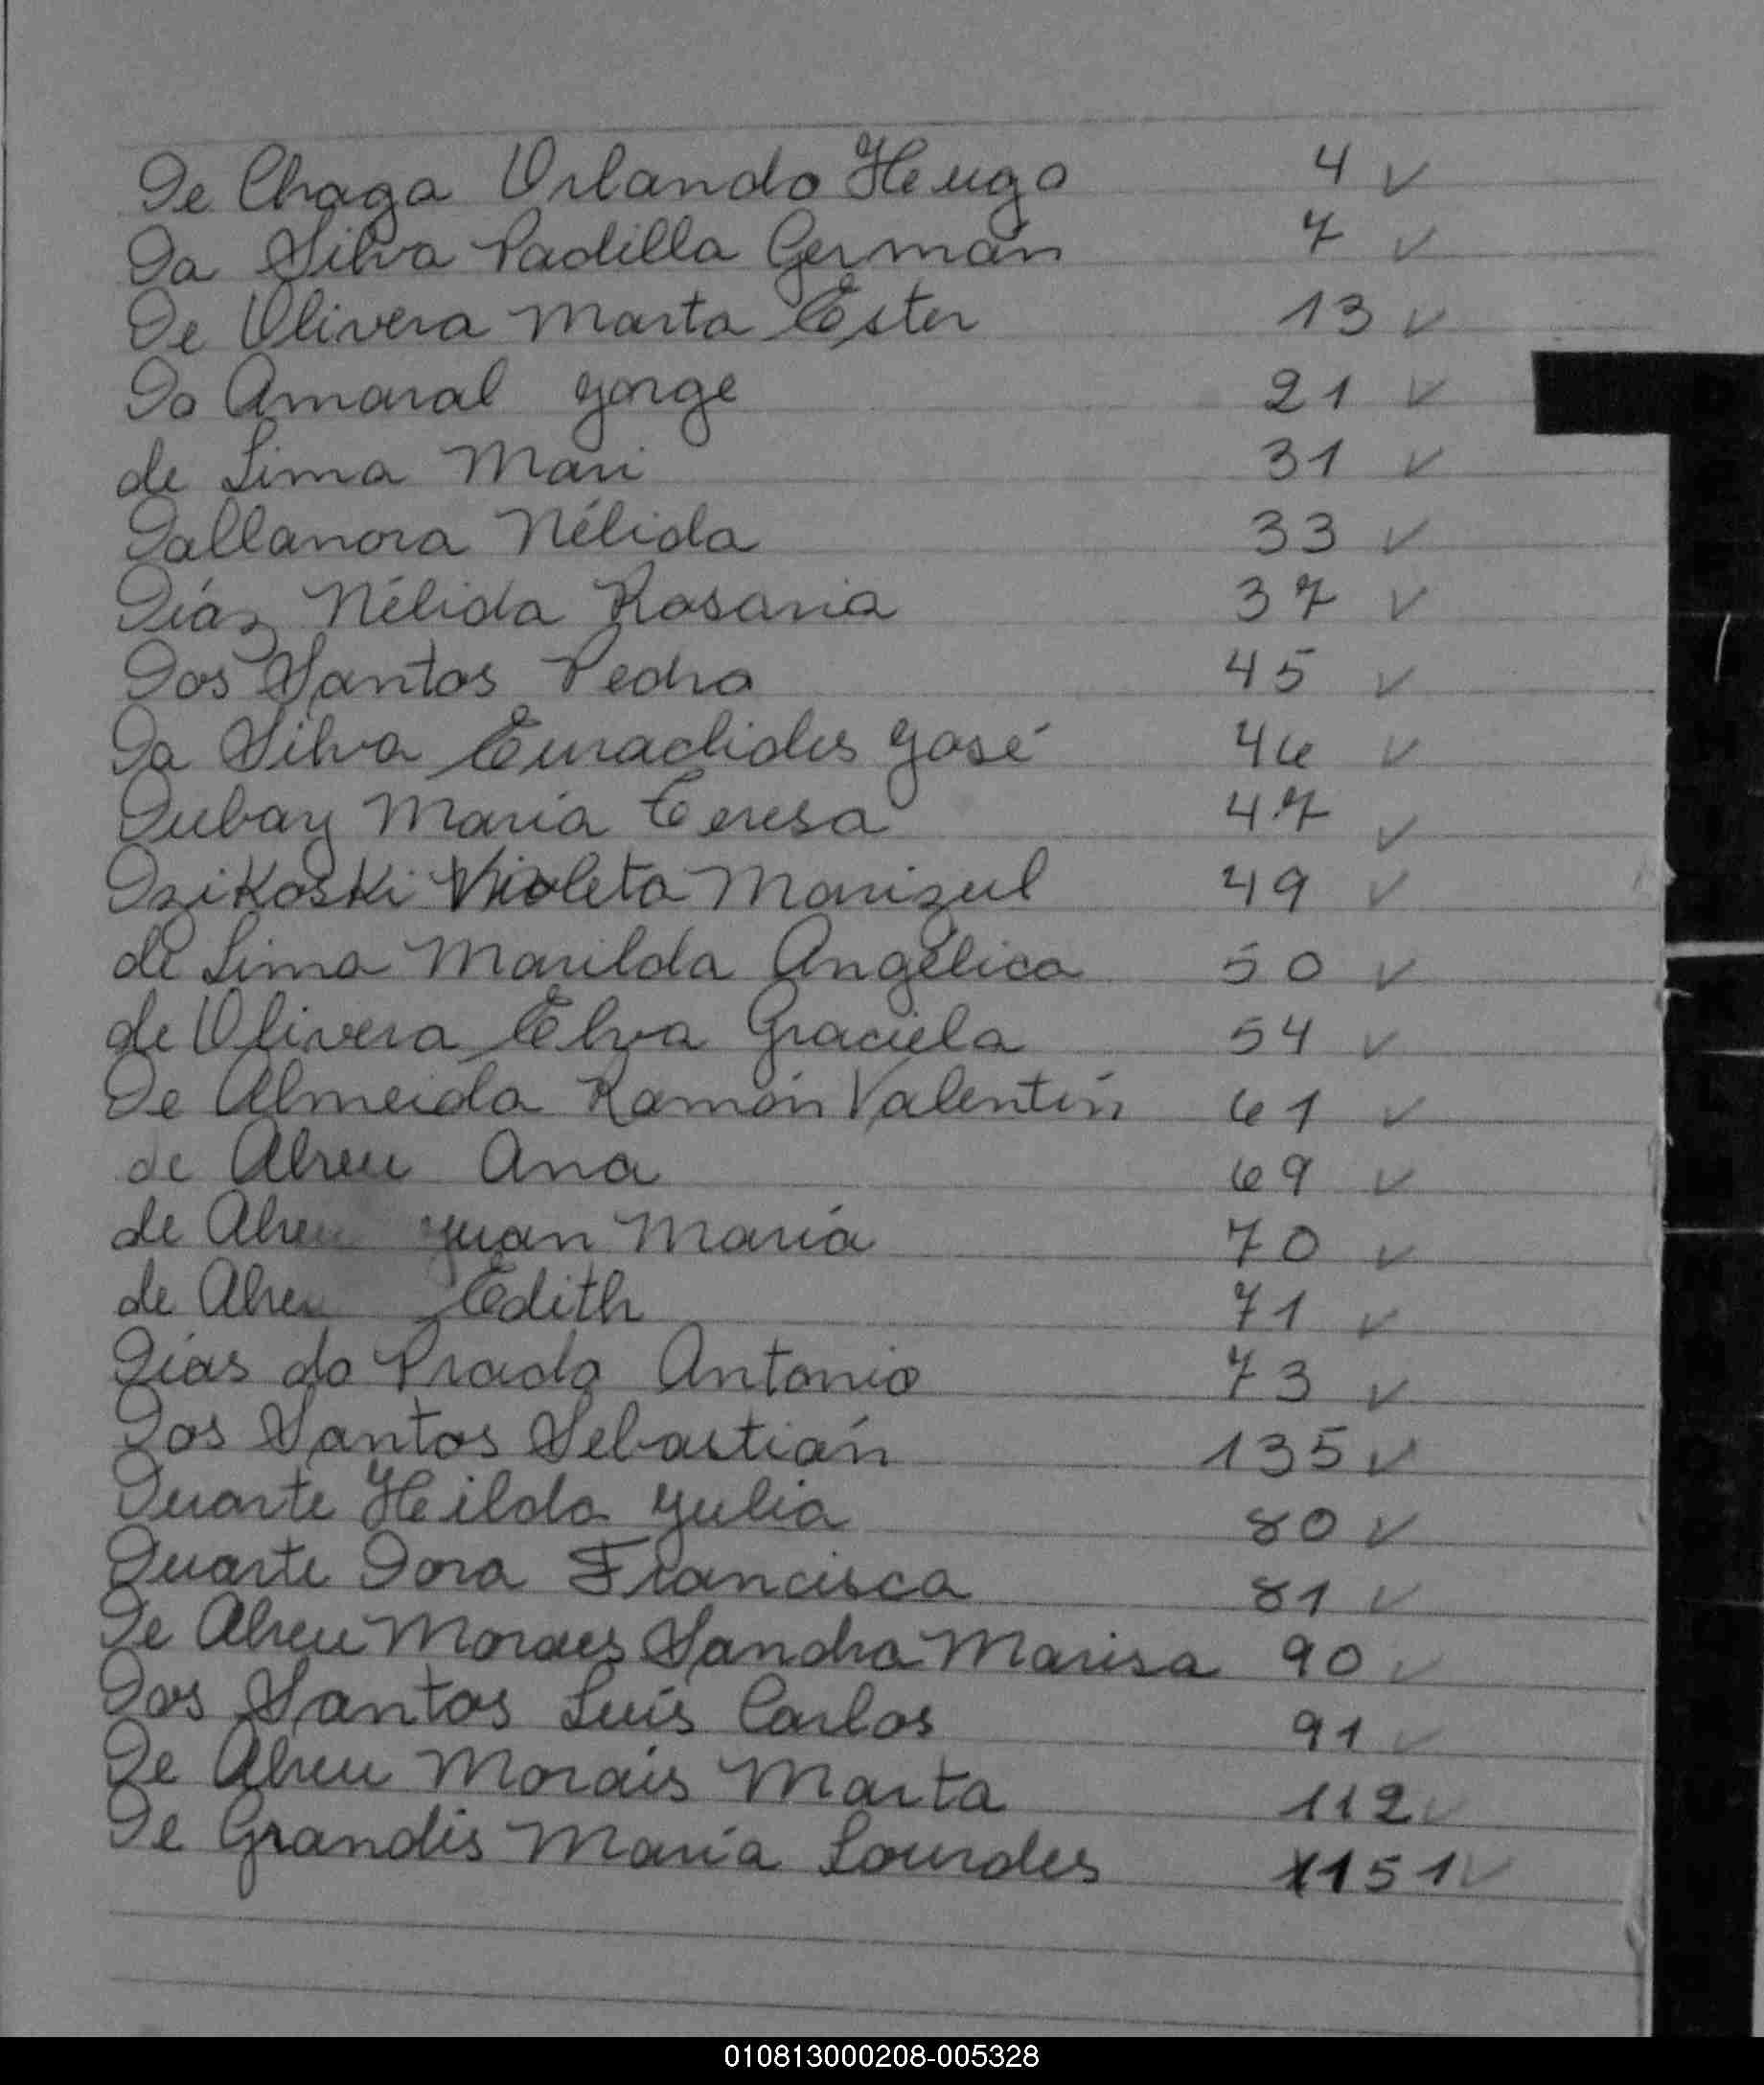 De Chaga Orlando Hugo 4 ✓
Da Silva Padilla Germán 7 ✓
De Olivera Marta Ester 13 ✓
Do Amaral Jorge 21 ✓
de Lima Mari 31 ✓
Dallanora Nélida 33 ✓
Diáz Nélida Rosaria 37 ✓
Dos Santos Pedro 45 ✓
Da Silva Euraclides José 46 ✓
Dubay María Teresa 47 ✓
Dzikoski Violeta Marizul 49 ✓
de Lima Marilda Angélica 50 ✓
de Olivera Elva Graciela 54 ✓
De Almeida Ramón Valentín 61 ✓
de Abreu Ana 69 ✓
de Abreu Juan María 70 ✓
de Abreu Edith 71 ✓
Días do Prado Antonio 73 ✓
Dos Santos Sebastián 135 ✓
Duarte Hilda Julia 80 ✓
Duarte Dora Francisca 81 ✓
De Abreu Moraes Sandra Marisa 90 ✓
Dos Santos Luís Carlos 91 ✓
De Abreu Morais Marta 112 ✓
De Grandis María Lourdes 151 ✓
010813000208-005328